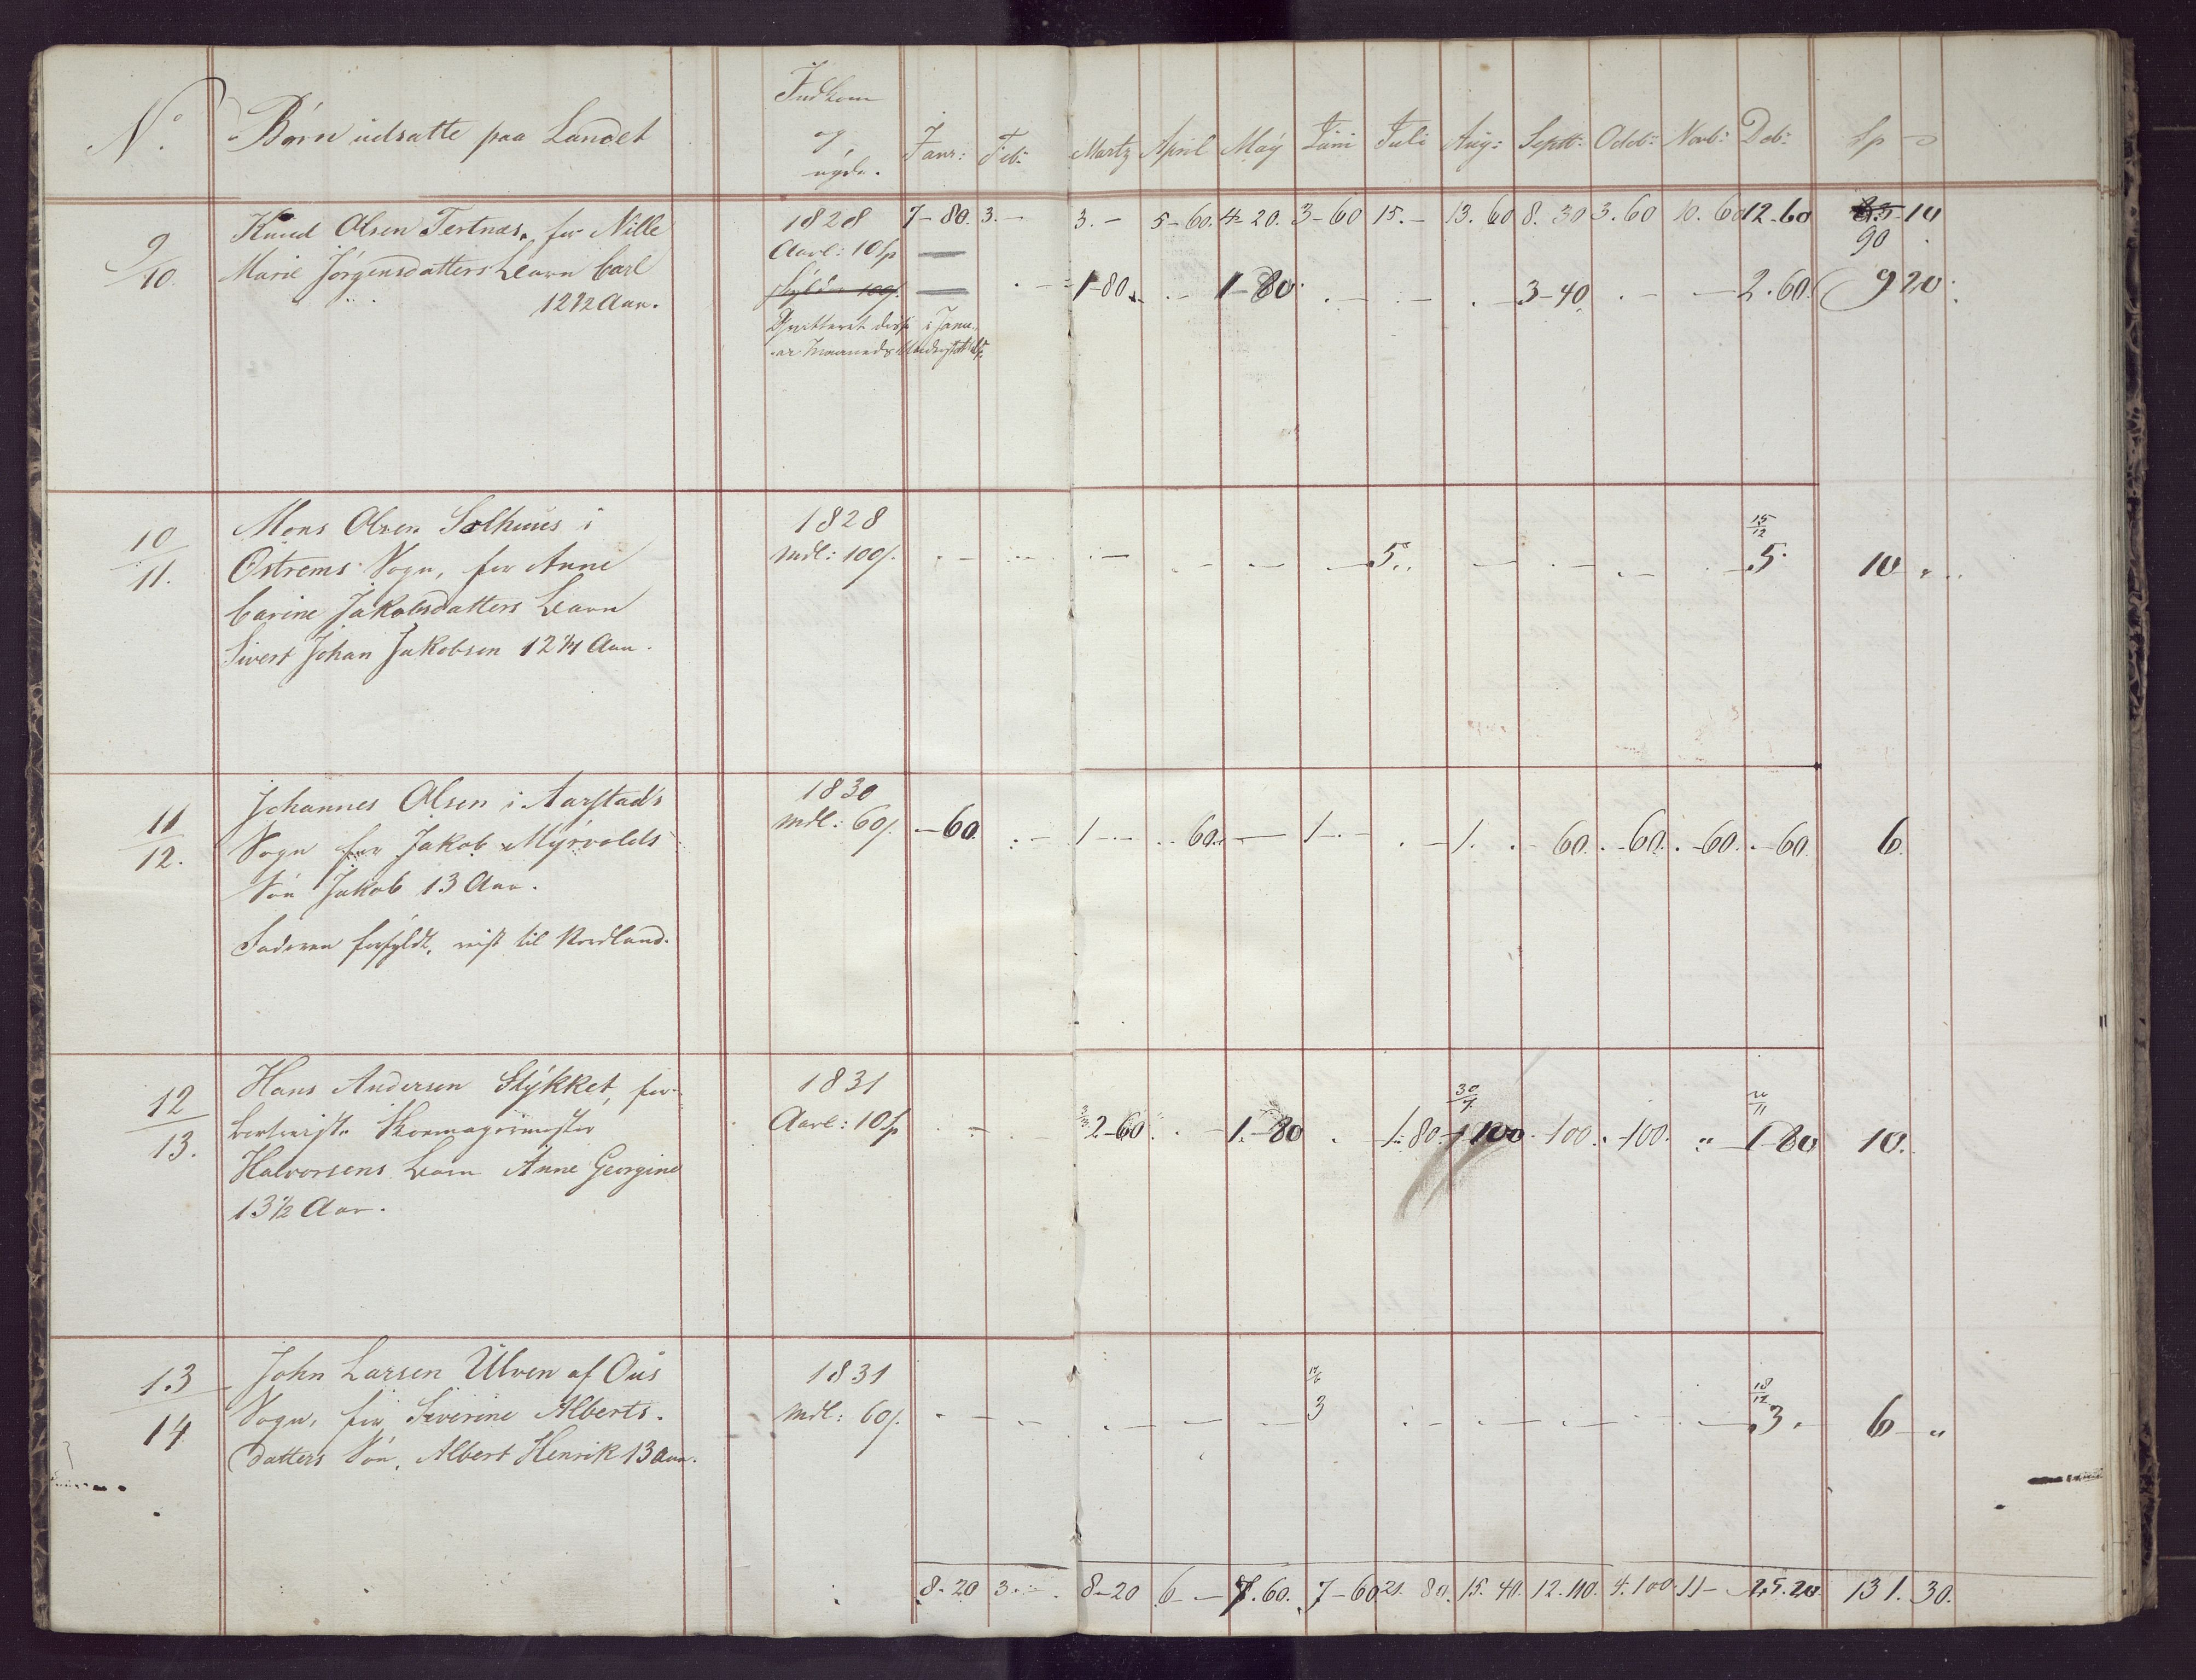 No.
Børn udsatte paa Landet
Indkom
og
nyde.
Janr:
Feb:
Martz
April
May
Juni
Juli
Aug:
Septbr:
Octob:
Novb:
Deb:
Sp
9/10.
Knud Olsen Tertnæs, for Nille
Marie Jørgensdatters Barn Carl
12 1/2 Aar.
1828
Aarl: 10 Sp
7-80. 3.- 3.- 5-60. 4-20. 3-60 15.- 13.60 8.30 3.60 10.60 12-60 10
90
1-80. 1-80. 3-40. 2.60. 9 20.
Qvitteret
10/11.
Mons Olsen Solhuus i
Ostrems Sogn, for Anne
Carine Jakobsdatters Barn
Sivert Johan Jakobsen 12 3/4 Aar.
1828
Mdl: 100 s.
5.
15/12
5.
10
11/12.
Johannes Olsen i Aarstads
Sogn for Jakob Myrvolds
Søn Jakob 13 Aar.
Faderen reist til Nordland.
1830
Mdl: 60 s.
-60. 1 60. 1 1. 60. -60. -60. -60. 6.
12/13.
Hans Andersen Stykket, for
bortreiste Skomagermester
Halvorsens Barn Anne Georgine
13 1/2 Aar.
1831
Aarl: 10 Sp
2-60. 1.-80 1.-80. 30/7 100. 100. -100. " 20/11 1-80 10.
13/14
John Larsen Ulven af Ous
Sogn, for Severine Alberts-
datters Søn, Albert Henrik 13 Aar.
1831
Mdl: 60 s.
3
18/12
3.
6 "
8.20 3. 8-20 6.- 7.60. 7-60 21.80. 15.40. 12.110. 4.100. 11- 25.20 131.30.